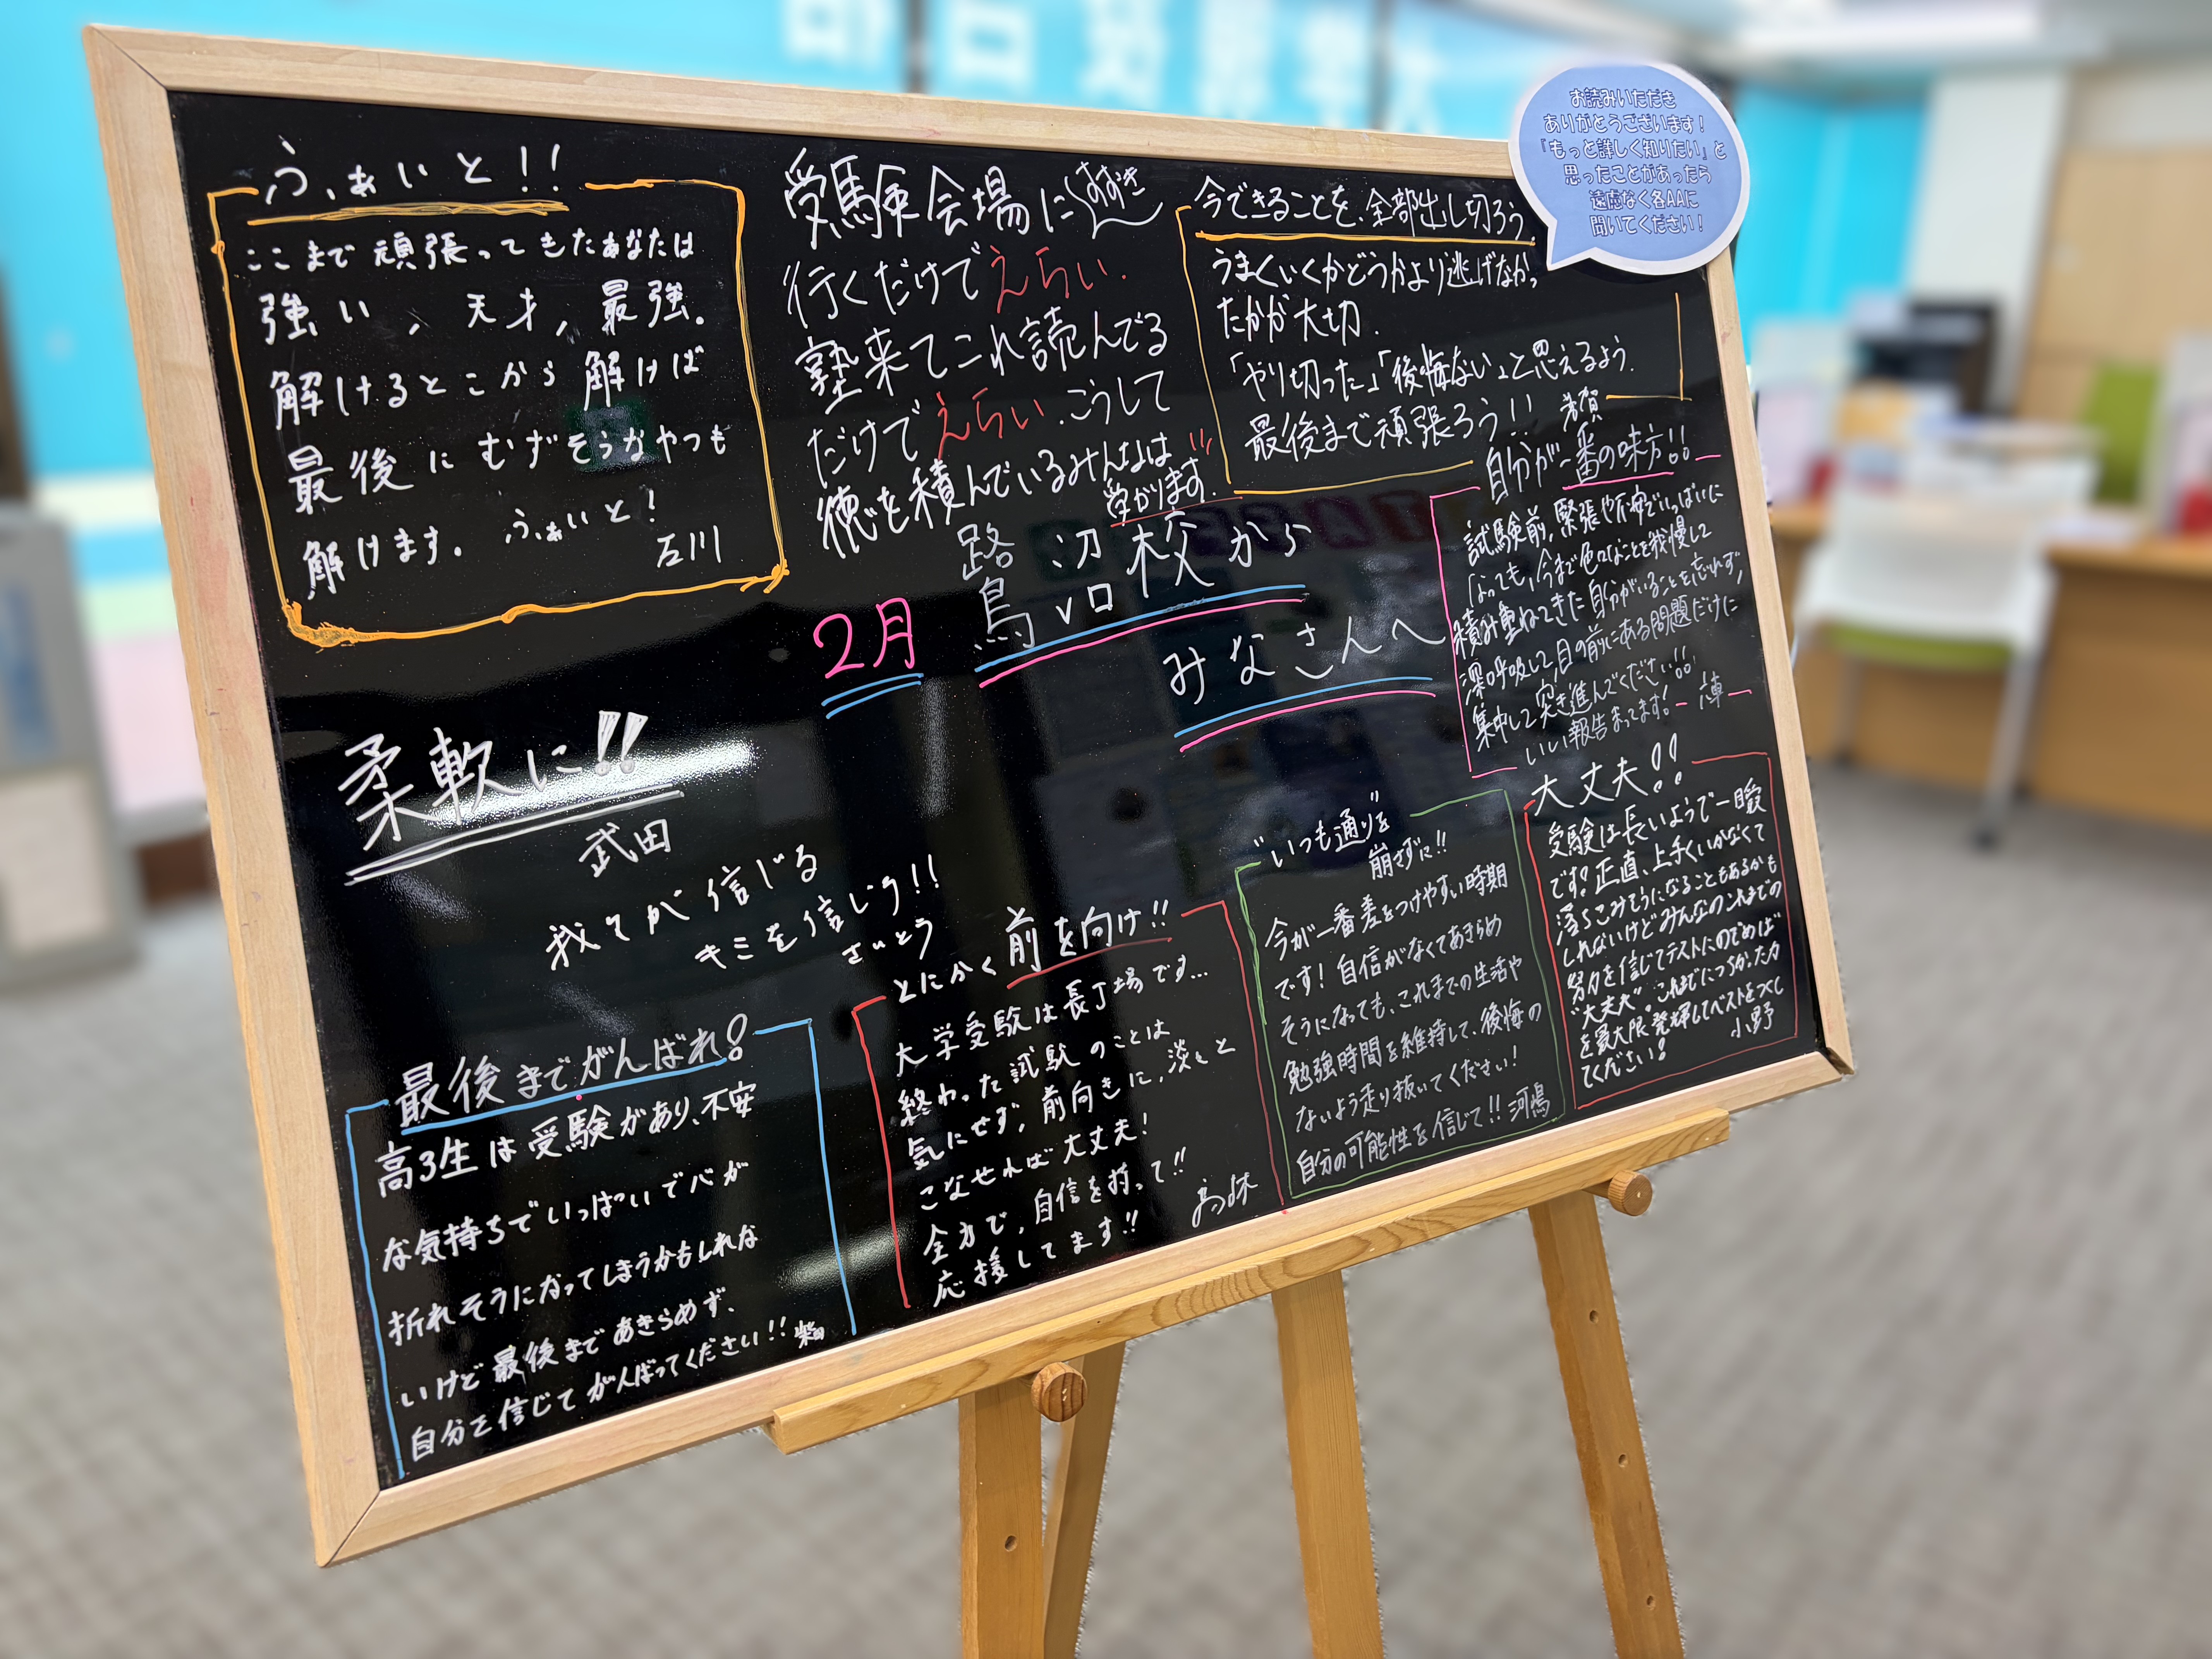 ふぁいと!!
ここまで頑張ってきたあなたは
強い、天才、最強。
解けるところから解けば
最後にむずそうなやつも
解けます。ふぁいと!
石川
受験会場に
すずき
行くだけでえらい.
塾来てこれ読んでる
だけでえらい.こうして
徳を積んでいるみんなは
受かります.
今できることを、全部出し切ろう.
うまくいくかどうかより逃げなかっ
たかが大切.
「やり切った」「後悔ない」と思えるよう.
最後まで頑張ろう!!
お読みいただき
ありがとうございます!
『もっと詳しく知りたい』と
思ったことがあったら
遠慮なく各AAに
聞いてください!
自分が一番の味方!!
試験前,緊張や不安でいっぱいに
なっても,今まで色々なことを我慢して
積み重ねてきた自分がいることを忘れず,
深呼吸して,目の前にある問題だけに
集中して突き進んでください!!
いい報告まってます!
2月
鷺沼校から
みなさんへ
柔軟に!!
武田
我々が信じる
キミを信じろ!!
さいとう
最後までがんばれ!
高3生は受験があり、不安
な気持ちでいっぱいで心が
折れそうになってしまうかもしれな
いけど最後まであきらめず、
自分を信じてがんばってください!!
とにかく前を向け!!
大学受験は長丁場です...
終わった試験のことは
気にせず,前向きに,淡々と
こなせれば大丈夫!
全力で,自信を持って!!
応援してます!!
"いつも通り"を
崩さずに!!
今が一番差をつけやすい時期
です!自信がなくてあきらめ
そうになっても、これまでの生活や
勉強時間を維持して、後悔の
ないよう走り抜いてください!
自分の可能性を信じて!!河嶋
大丈夫!!
受験は長いようで一瞬
です!正直、上手くいかなくて
落ちこみそうになることもあるかも
しれないけどみんなのこれまでの
努力を信じてテストにのぞめば
"大丈夫"。これまでにつちかった力
を最大限発揮してベストをつくし
てください!
小野